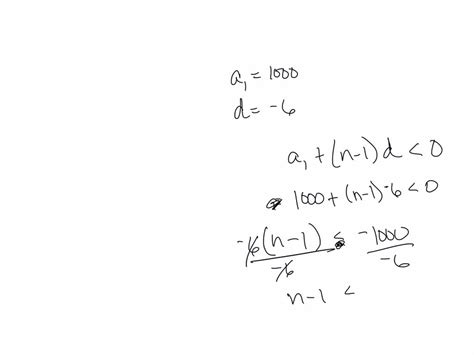 a₁ = 1000
d = -6
a₁ + (n-1)d < 0
1000 + (n-1)-6 < 0
-6(n-1) < -1000
-6 -6
n-1 <